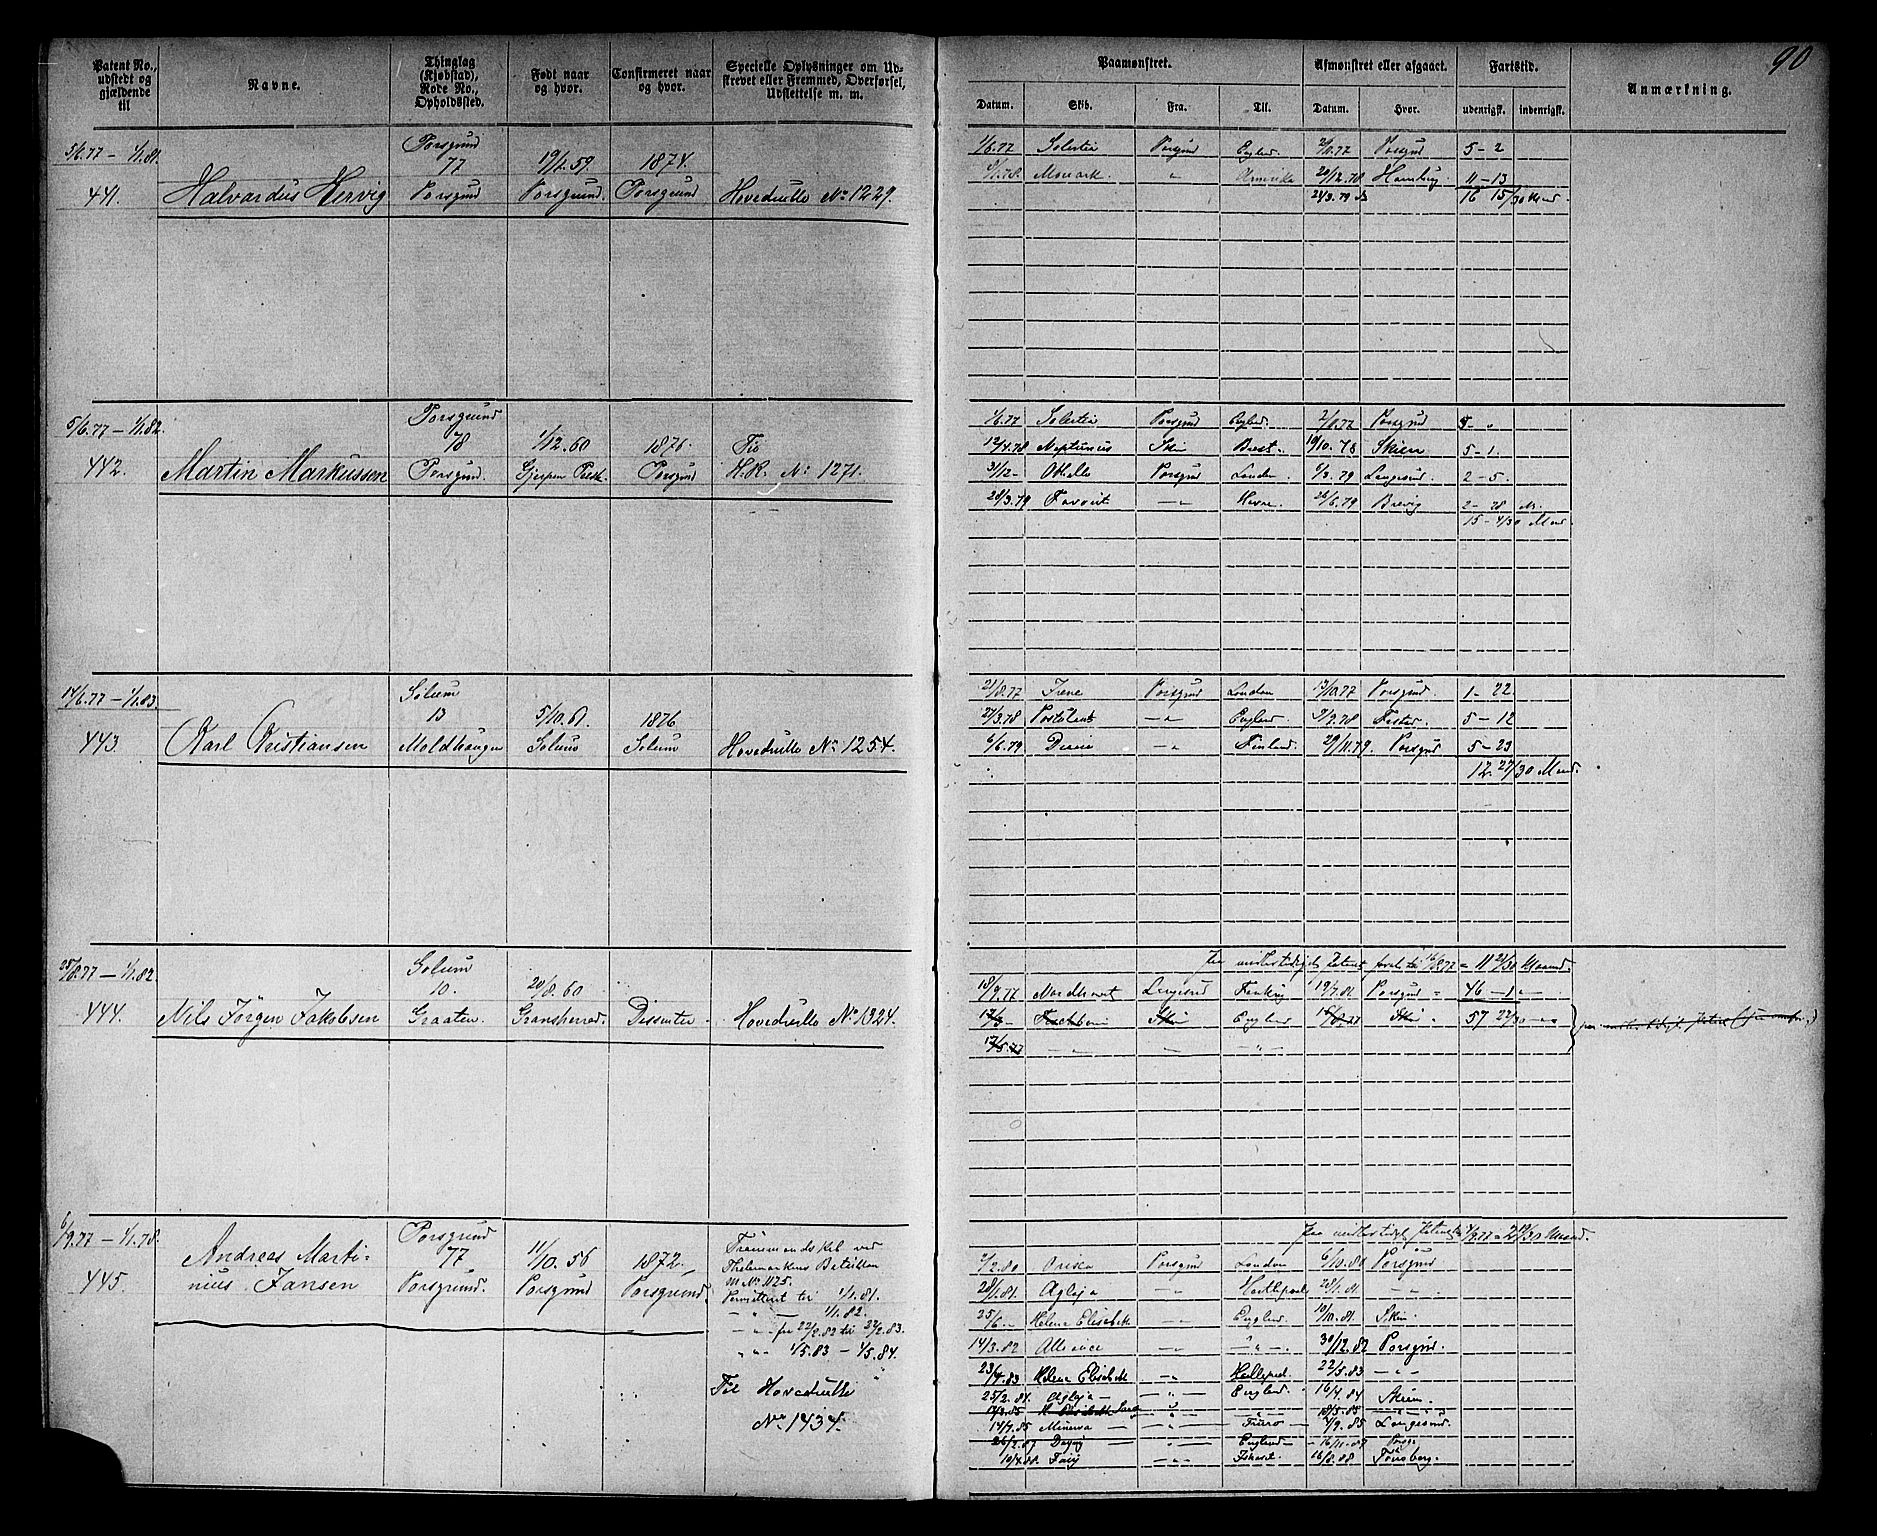 90
Patent No., udstedt og gjældende til
Navne.
Thinglag (Kjøbstad), Rode No., Opholdssted.
Født naar og hvor.
Confirmeret naar og hvor.
Specielle Oplysninger om Udskrevet eller Fremmed, Overførsel, Udslettelse m. m.
Paamønstret.
Afmønstret eller afgaaet.
Fartstid.
Anmærkning.
Datum. Skib. Fra. Til. Datum. Hvor. udenrigsk. indenrigsk.
5/6.77 – 1/1.81. Porsgrund
77 19/2.59. 1874.
441. Halvardus Hervig Porsgrund Porsgrund. Porsgrund Hovedrulle No 1229.
1/6.77 Solertia Porsgrund Engld. 2/11.77 Porsgrund 5 – 2
Monark " Amerika 20/12.78 Hamburg. 11 – 13
24/3.79 16 15/30 Mnd.
5/6.77 – 1/1.82. Porsgrund
78 1/12.60 1876. Til
442. Martin Markussen Porsgrund. Gjerpen Prestk. Porsgrund H.R. No 1271.
1/6.77 Solertia Porsgrund Engld. Porsgrund 5 – "
12/4.78 Neptunus Skien Brest. 19/10.78 Skien 5 – 1.
31/12 – Othello Porsgrund London 6/3.79 Langesund. 2 – 5.
28/3.79 Favorit – " – Havre. 26/6.79 Brevig 2 – 28
15 – 4/30 Mnd.
14/6.77 – 1/1.83. Solum
13 5/10.61. 1876
443. Karl Kristiansen Moldhaugen Solum Solum Hovedrulle No 1254.
21/8.77 Irene Porsgrund London 12/10.77 Porsgrund. 1 – 22.
27/3.78 Postillent – " – England. 9/9.78 5 – 12
6/6.79 – " – Finland. 29/11.79. Porsgrund 5 – 23
12. 27/30 Mnd.
25/8.77 – 1/1.82. Solum
10. 20/8.60
444. Nils Jörgen Jakobsen Graaten. Gransherred. Dissenter. Hovedrulle No 1324.
16/8.77 = 11 21/30 Maaned.
18/9.77 Nordhavet Langesund 19/7.81. Porsgrund " 46 – 1 –
Skien England 16/8.77 Skien " 57 22/30
12/5.77 – " – – " – – " –
6/9.77 – 1/1.78. Porsgrund
Andreas Marti- 77 11/10.56 1872.
445. nius Jansen Porsgrund. Porsgrund Porsgrund.
Thelemarkens Bataillon
M No 1175.
Permitteret til 1/1.81.
– " – 1/1.82.
– " – fra 22/2.82 til 22/2.83.
" " 1/5.83 – 1/5.84.
Til Hovedrulle
No 1434.
2/2.80 Porsgrund London 6/10.80 Porsgrund
20/1.81. Aglaja – " – Hartlepool 28/1.81. – " –
25/6 – Helene Elisabeth – " – England. 10/10.81. Skien.
14/3.82 Alliance – " – – " – 30/12.82 Porsgrund.
23/4.83 Helene Elisabeth – " – 22/5.83 – " –
25/2.84. Aglaja – – " – England. 16/4.84 Skien.
14/3.85 H. Elisabeth 18/5.85 "
14/7.85 Minerva – " – Truro – 4/9.85 Langesund.
26/2.87 – " – England – 16/11.87 Porsgr
10/4.88 – " – 16/8.88 Tönsberg.